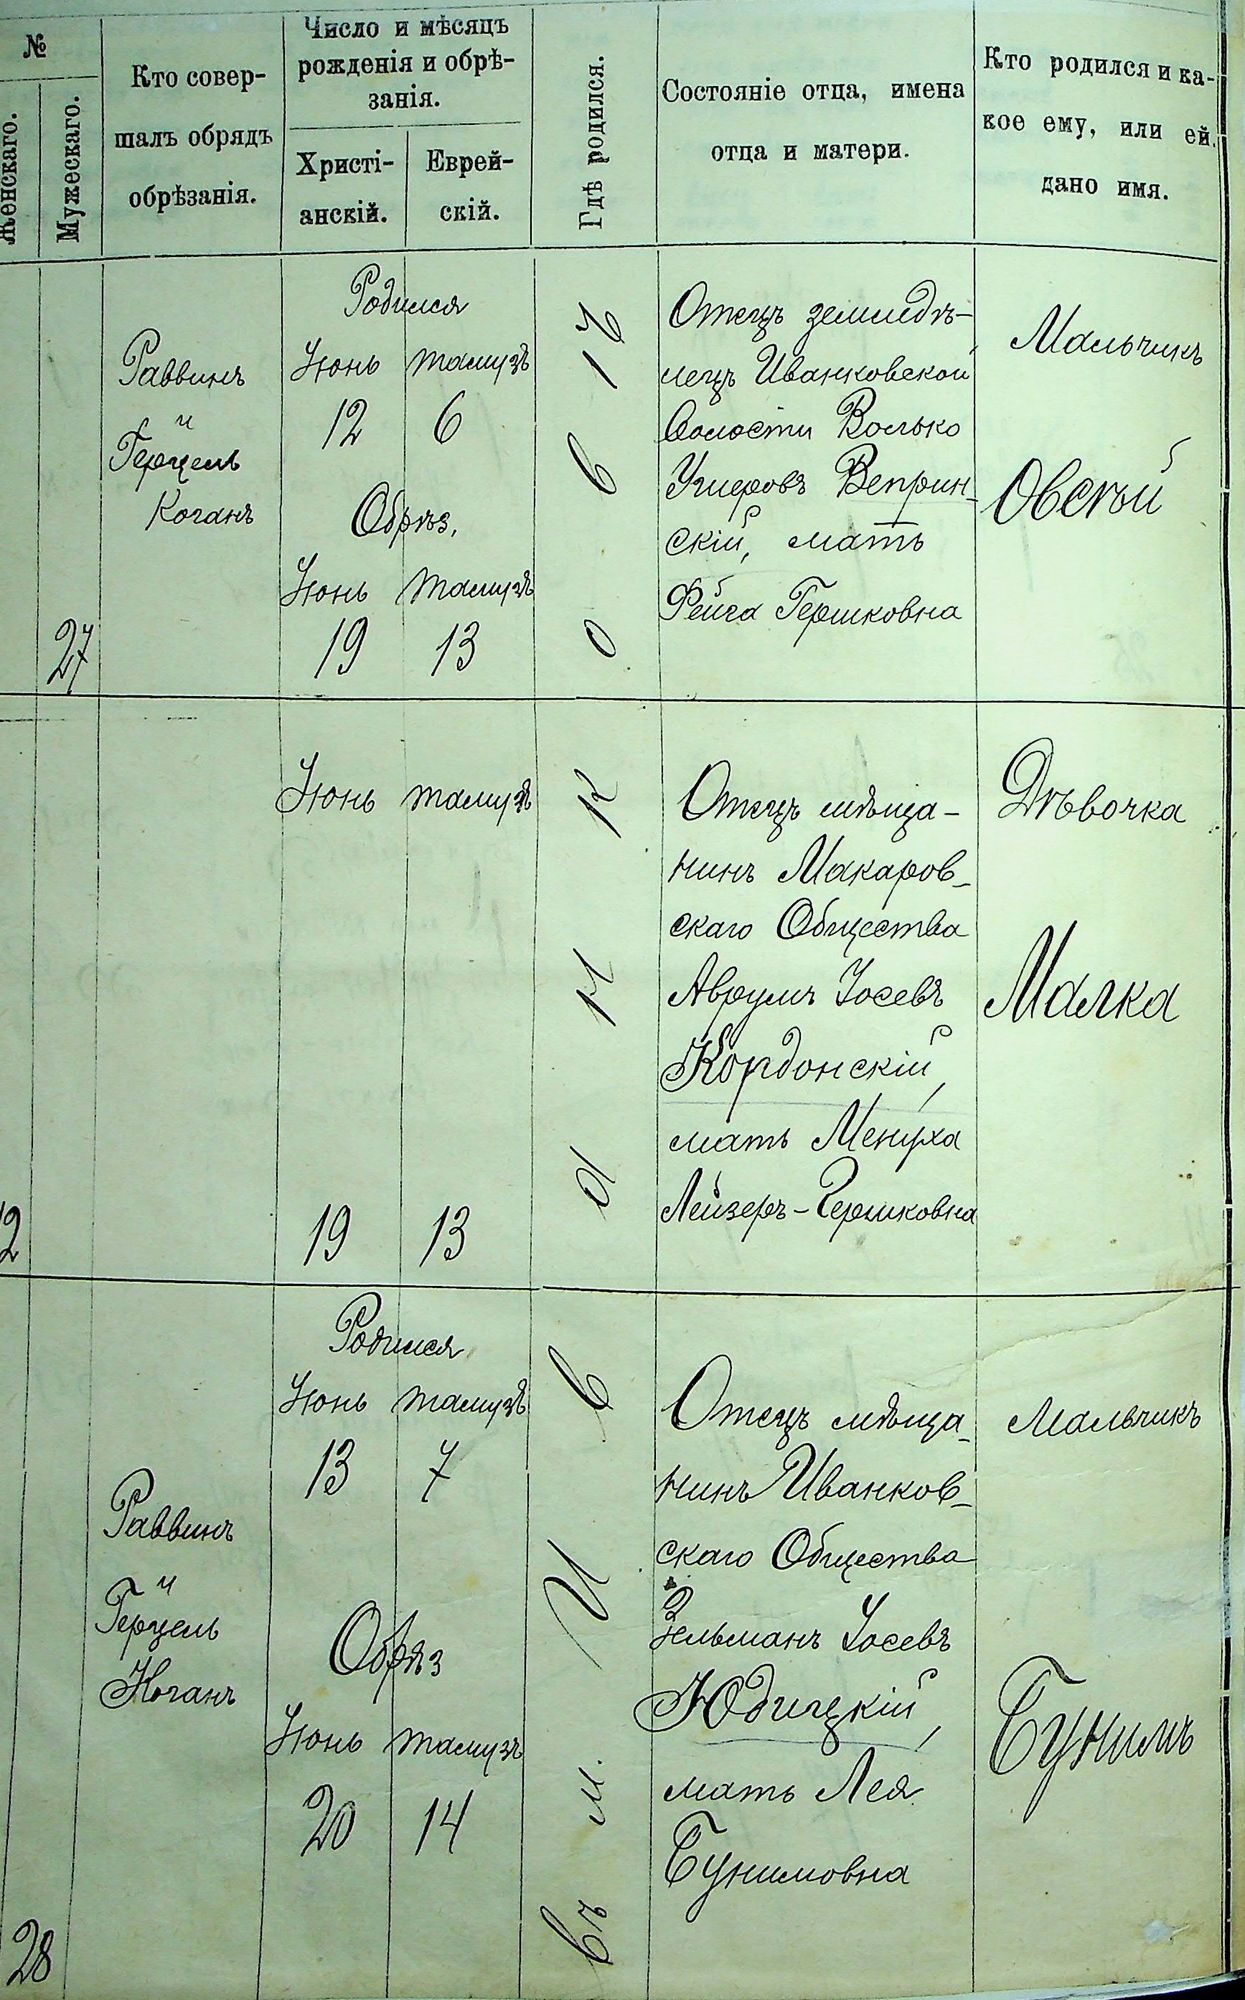 №
Женскаго.
Мужескаго.
Кто совер-
шалъ обрядъ
обрѣзанія.
Число и мѣсяцъ
рожденія и обрѣ-
занія.
Христі-
анскій.
Еврей-
скій.
Гдѣ родился.
Состояніе отца, имена
отца и матери.
Кто родился и ка-
кое ему, или ей
дано имя.
27
Раввинъ
и
Герцель
Коганъ
Родился
Іюнь Тамузъ
12 6
Обрѣз.
Іюнь Тамузъ
19 13
Отецъ земледѣ-
лецъ Иванковской
Волости Волько
Веприн-
скій, мать
Фейга Гершковна
Мальчикъ
Овсѣй
12
Іюнь Тамузъ
19 13
Отецъ мѣща-
нинъ Макаров-
скаго Общества
Аврумъ Іосевъ
Кордонскій,
мать Менуха
Лейзеръ-Гершковна
Дѣвочка
Малка
28
Раввинъ
и
Герцель
Коганъ
Родился
Іюнь Тамузъ
13 7
Обрѣз
Іюнь Тамузъ
20 14
въ м. И в
а н к
о в ѣ
Отецъ мѣща-
нинъ Иванков-
скаго Общества
Зельманъ Іосевъ
Юдицкій,
мать Лея
Бунимовна
Мальчикъ
Бунимъ